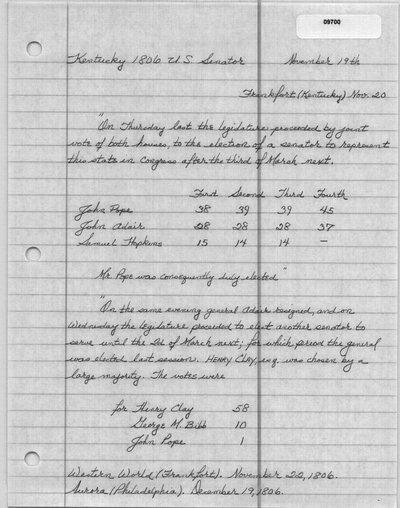 09700
Kentucky 1806 U.S. Senator November 19th
Frankfort (Kentucky) Nov. 20
"On Thursday last the legislature proceeded by joint
vote of both houses, to the election of a senator to represent
this state in Congress after the third of March next.
First Second Third Fourth
John Pope 38 39 39 45
John Adair 28 28 28 37
Samuel Hopkins 15 14 14 –
Mr Pope was consequently duly elected"
"On the same evening general Adair resigned, and on
Wednesday the legislature proceeded to elect another senator to
serve until the 3d of March next; for which period the general
was elected last session. HENRY CLAY, esq. was chosen by a
large majority. The votes were
for Henry Clay 58
George M. Bibb 10
John Pope 1
Western World (Frankfort). November 22, 1806.
Aurora (Philadelphia). December 19, 1806.